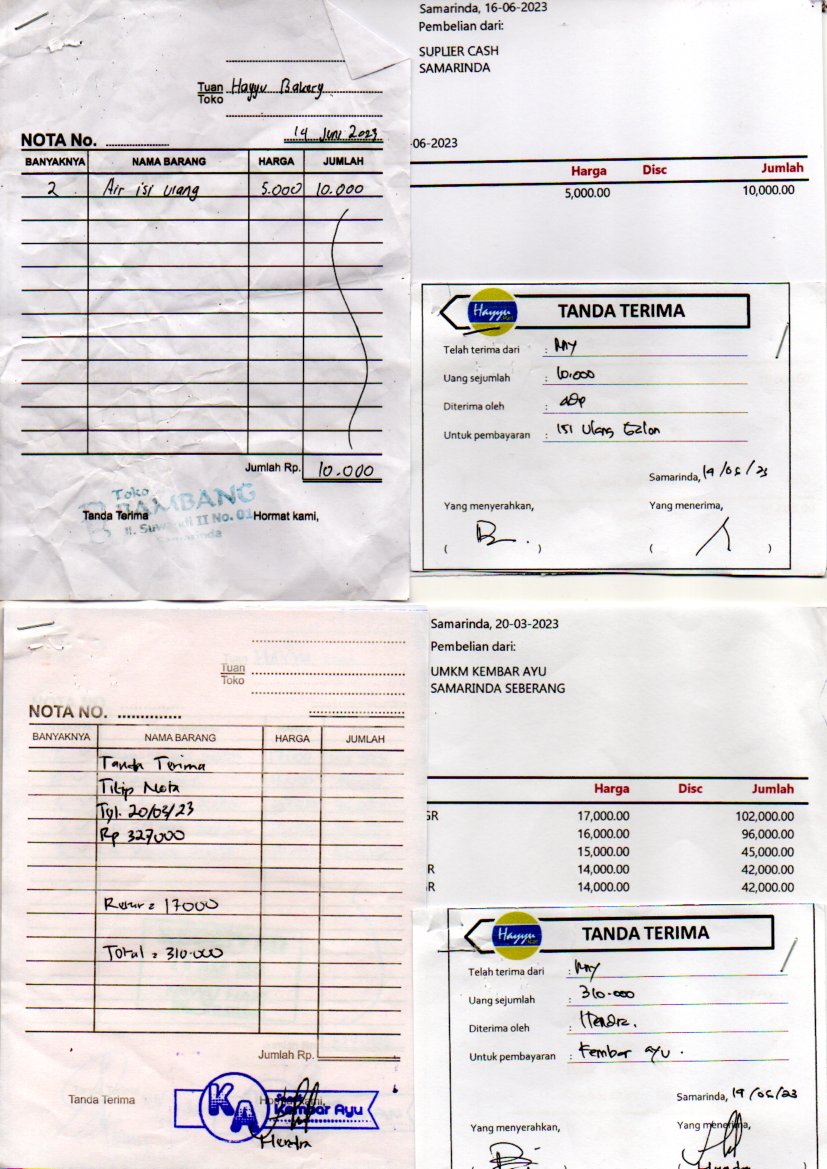 Tuan
Toko
Hayyu Bakery
NOTA No. ....................
14 Juni 2023
BANYAKNYA NAMA BARANG HARGA JUMLAH
2 Air isi ulang 5.000 10.000
Jumlah Rp. 10.000
Toko
BAMBANG
Jl. Suwandi II No. 01
Samarinda
Tanda Terima Hormat kami,
Samarinda, 16-06-2023
Pembelian dari:
SUPLIER CASH
SAMARINDA
-06-2023
Harga Disc Jumlah
5,000.00 10,000.00
Hayyu
TANDA TERIMA
Telah terima dari : My
Uang sejumlah : 10.000
Diterima oleh :
Untuk pembayaran : Isi Ulang Galon
Samarinda, 19/06/23
Yang menyerahkan, Yang menerima,
( ) ( )
Tuan
Toko
NOTA NO. ..............
BANYAKNYA NAMA BARANG HARGA JUMLAH
Tanda Terima
Titip Nota
Tgl. 20/03/23
Rp 327000
Retur = 17000
Total = 310.000
Jumlah Rp.
Tanda Terima Hormat kami,
KA
Kembar Ayu
Hendra
Samarinda, 20-03-2023
Pembelian dari:
UMKM KEMBAR AYU
SAMARINDA SEBERANG
Harga Disc Jumlah
GR 17,000.00 102,000.00
16,000.00 96,000.00
15,000.00 45,000.00
R 14,000.00 42,000.00
GR 14,000.00 42,000.00
Hayyu
TANDA TERIMA
Telah terima dari : My
Uang sejumlah : 310.000
Diterima oleh : Hendra.
Untuk pembayaran : Kembar ayu.
Samarinda, 19/06/23
Yang menyerahkan, Yang menerima,
Hendra